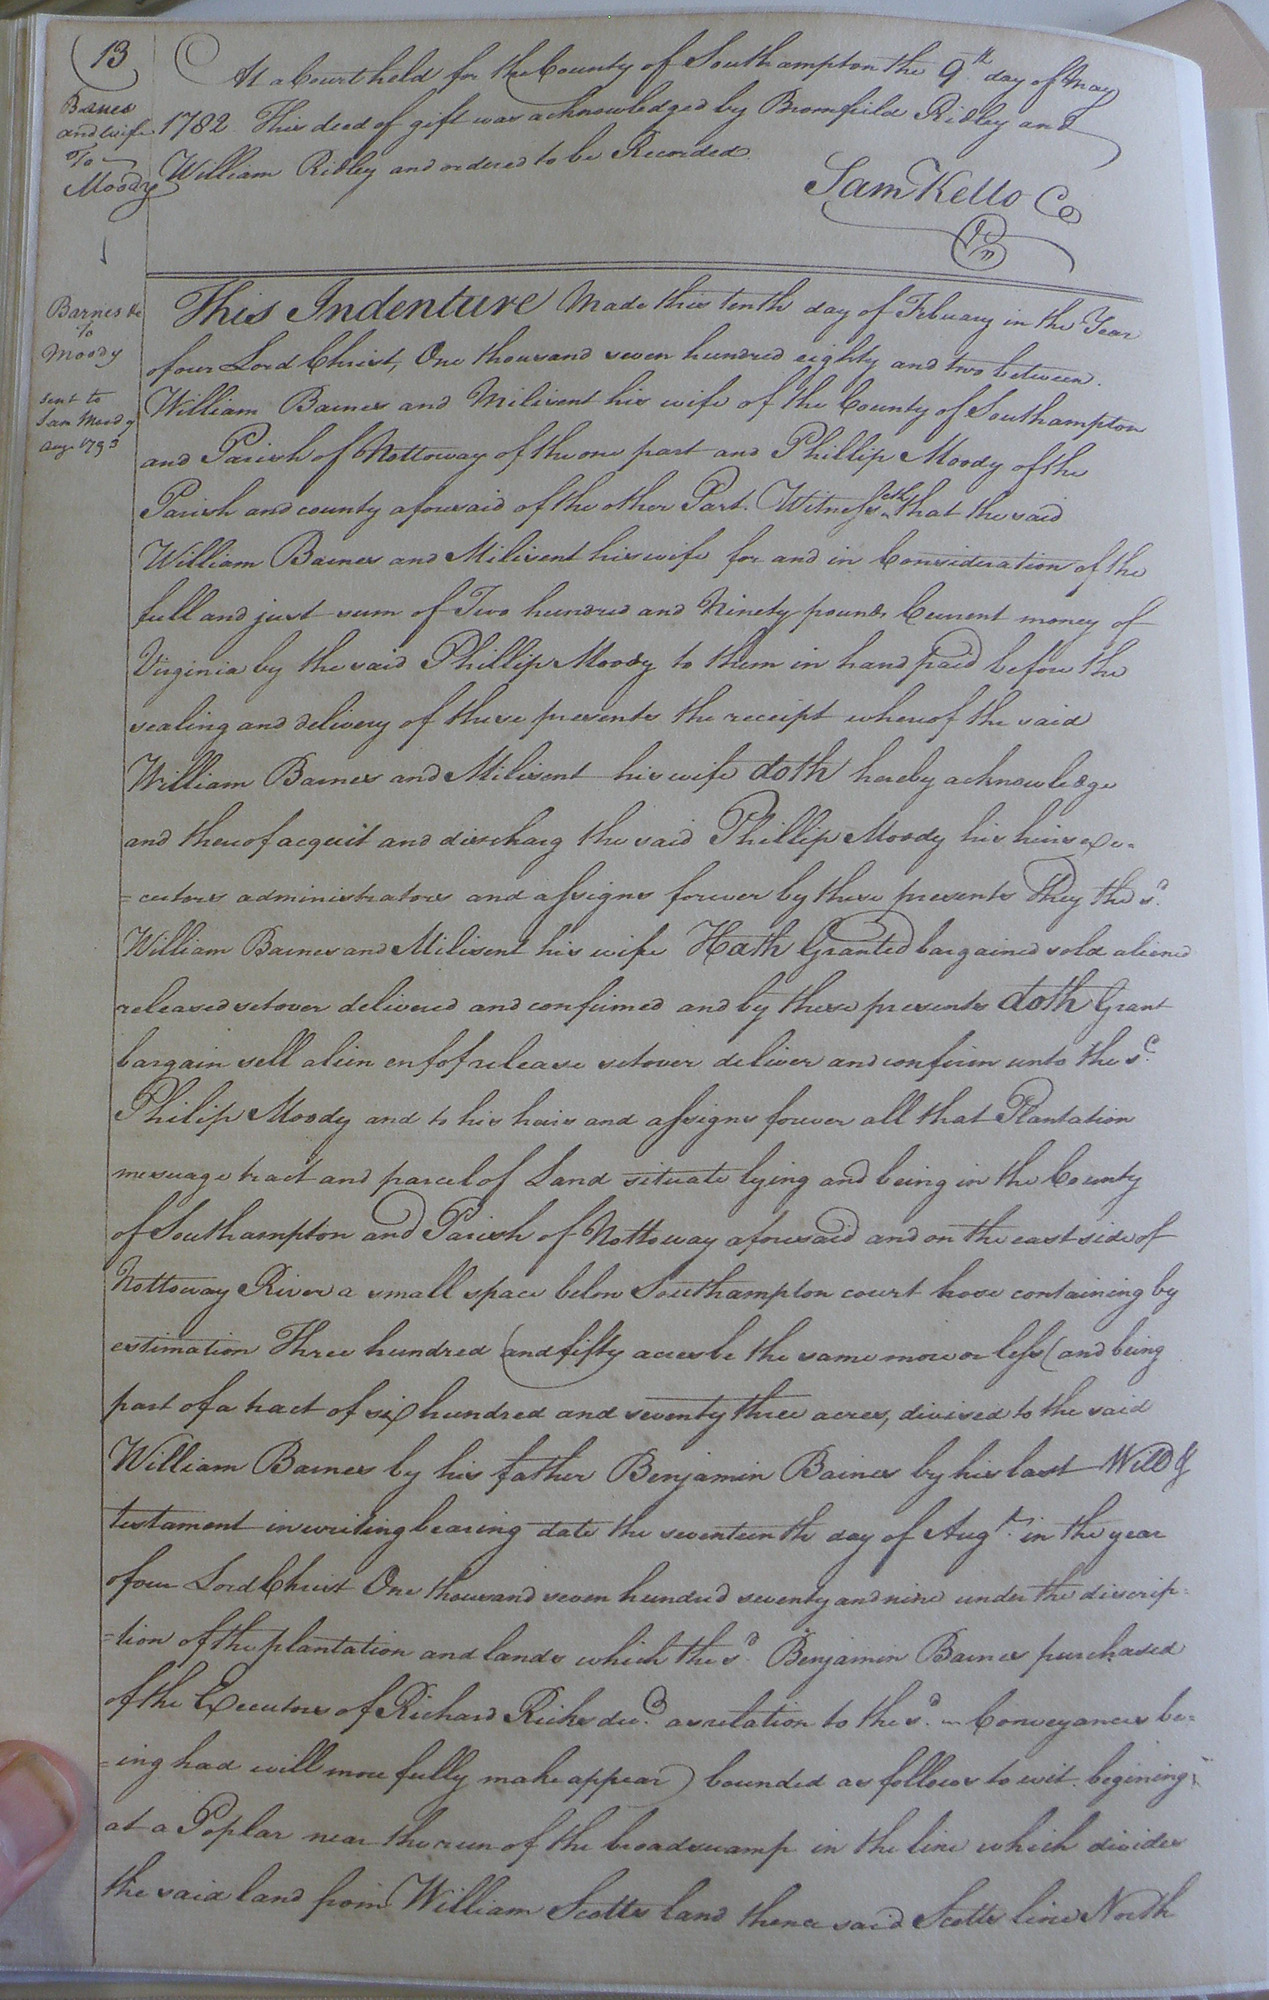 13
At a Court held for the County of Southampton the 9th day of May
1782 This deed of gift was acknowledged by Bromfield Ridley and
William Ridley and ordered to be Recorded
Sam Kello Co
Barnes
and wife
To
Moody
Barnes &c
To
Moody
sent to
Sam Moody
Augt 1793
This Indenture Made this tenth day of Febuary in the Year
of our Lord Christ, One thousand seven hundred eighty and two between
William Barnes and Milisent his wife of the County of Southampton
and Parish of Nottoway of the one part and Phillip Moody of the
Parish and county aforesaid of the other Part. Witnesseth that the said
William Barnes and Milisent his wife for and in Consideration of the
full and just sum of Two hundred and Ninety pounds Current money of
Virginia by the said Phillip Moody to them in hand paid before the
sealing and delivery of these presents the receipt whereof the said
William Barnes and Milisent his wife doth hereby acknowledge
and thereof acquit and discharg the said Phillip Moody his heirs exe-
=cutors administrators and assigns forever by these presents They the sd.
William Barnes and Milisent his wife Hath Granted bargained sold aliened
released setover delivered and confirmed and by these presents doth Grant
bargain sell alien enfof release setover deliver and confirm unto the sd.
Philip Moody and to his hairs and assigns forever all that Plantation
mesuage tract and parcel of Land situate lying and being in the County
of Southampton and Parish of Nottoway aforesaid and on the east side of
Nottoway River a small space below Southampton court hose containing by
estimation Three hundred (and fifty acres be the same more or less (and being
part of a tract of six hundred and seventy three acres, divised to the said
William Barnes by his father Benjamin Barnes by his last Will &
testament in writing bearing date the seventeenth day of Augt. in the year
of our Lord Christ One thousand seven hundred seventy and nine under the discrip=
=tion of the plantation and lands which the sd. Benjamin Barnes purchased
of the Executors of Richard Ricks decd. as relation to the sd. Conveyances be=
=ing had will more fully make appear) bounded as follows to wit. begining
at a Poplar near the run of the broadswamp in the line which divides
the said land from William Scotts land thence said Scotts line North